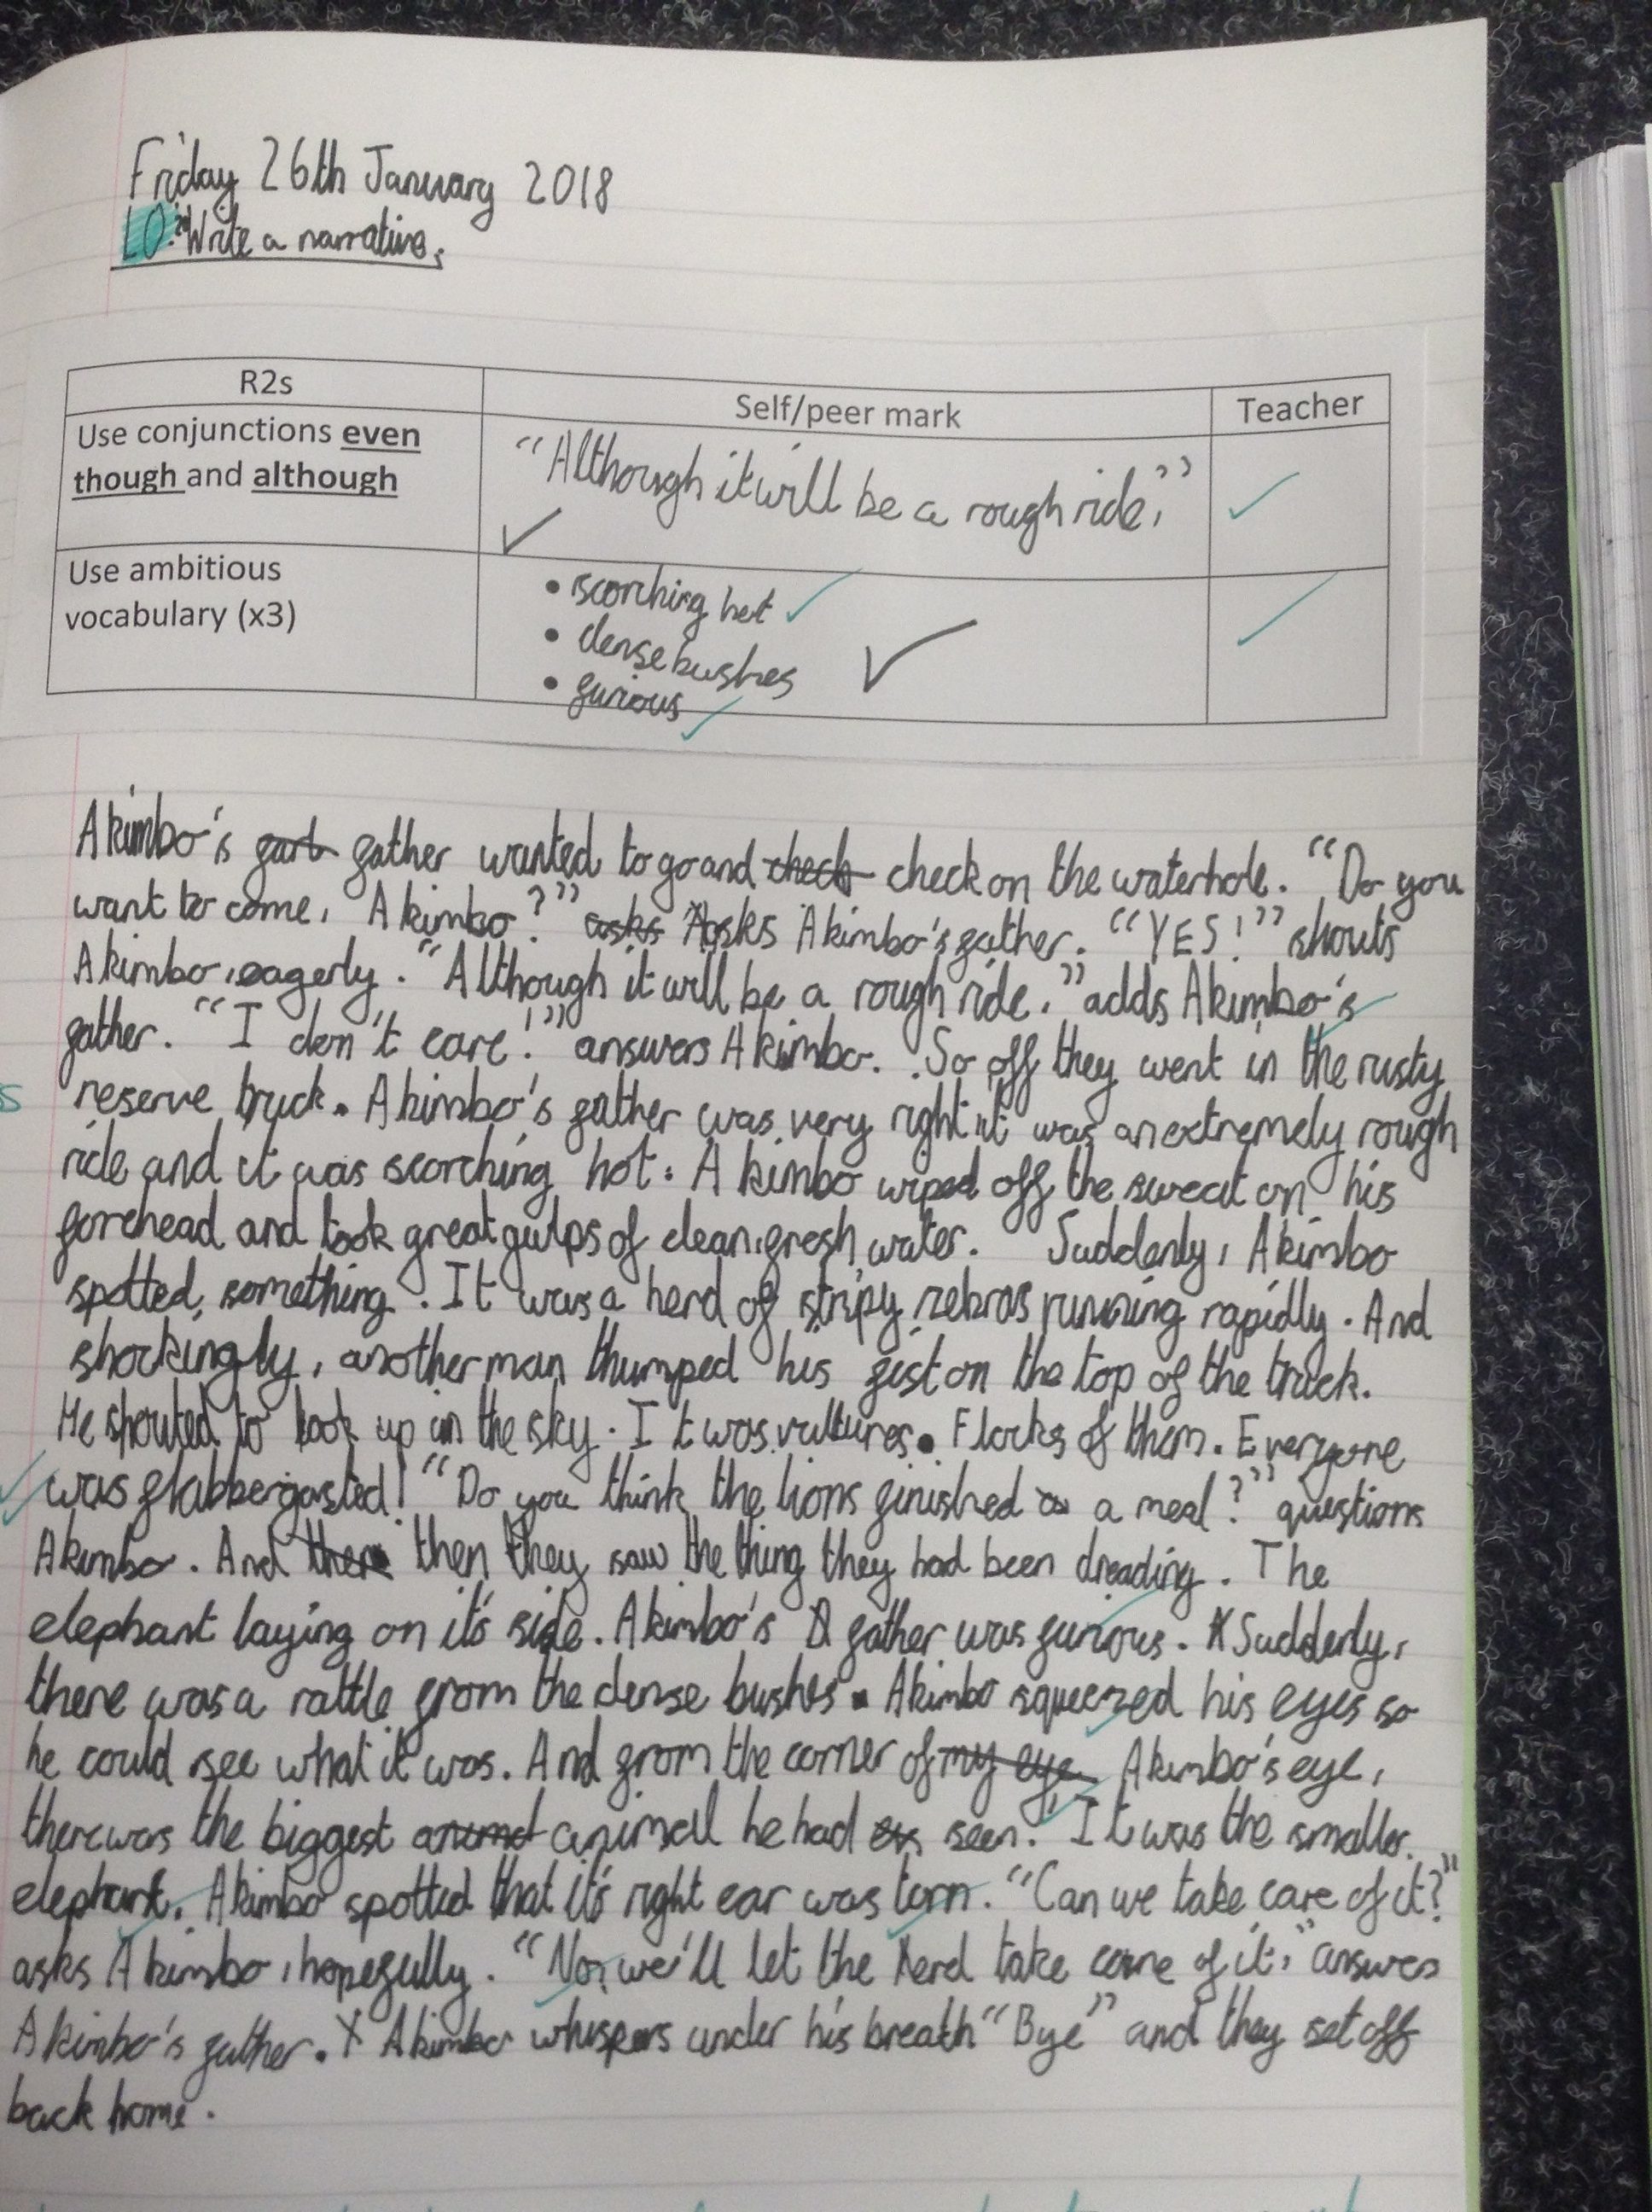 Friday 26th January 2018
LO: Write a narrative.
R2s
Self/peer mark
Teacher
Use conjunctions even
though and although
"Although it will be a rough ride,"
Use ambitious
vocabulary (x3)
• scorching hot
• dense bushes
• furious
Akimbo's father wanted to go and check check on the waterhole. "Do you
want to come, Akimbo?" asks Asks Akimbo's father. "YES!" shouts
Akimbo, eagerly. "Although it will be a rough ride," adds Akimbo's
father. "I don't care!" answers Akimbo. So off they went in the rusty
reserve truck. Akimbo's father was very right it was an extremely rough
ride and it was scorching hot. Akimbo wiped off the sweat on his
forehead and took great gulps of clean, fresh water. Suddenly, Akimbo
spotted something. It was a herd of stripy zebras running rapidly. And
shockingly, another man thumped his fist on the top of the truck.
He shouted to look up in the sky. It was vultures. Flocks of them. Everyone
was flabbergasted! "Do you think the lions finished a meal?" questions
Akimbo. And there then they saw the thing they had been dreading. The
elephant laying on it's side. Akimbo's father was furious. Suddenly,
there was a rattle from the dense bushes. Akimbo squeezed his eyes so
he could see what it was. And from the corner of my eye Akimbo's eye,
there was the biggest animal he had seen. It was the smaller
elephant. Akimbo spotted that it's right ear was torn. "Can we take care of it?"
asks Akimbo, hopefully. "No, we'll let the herd take care of it," answers
Akimbo's father. Akimbo whispers under his breath "Bye" and they set off
back home.